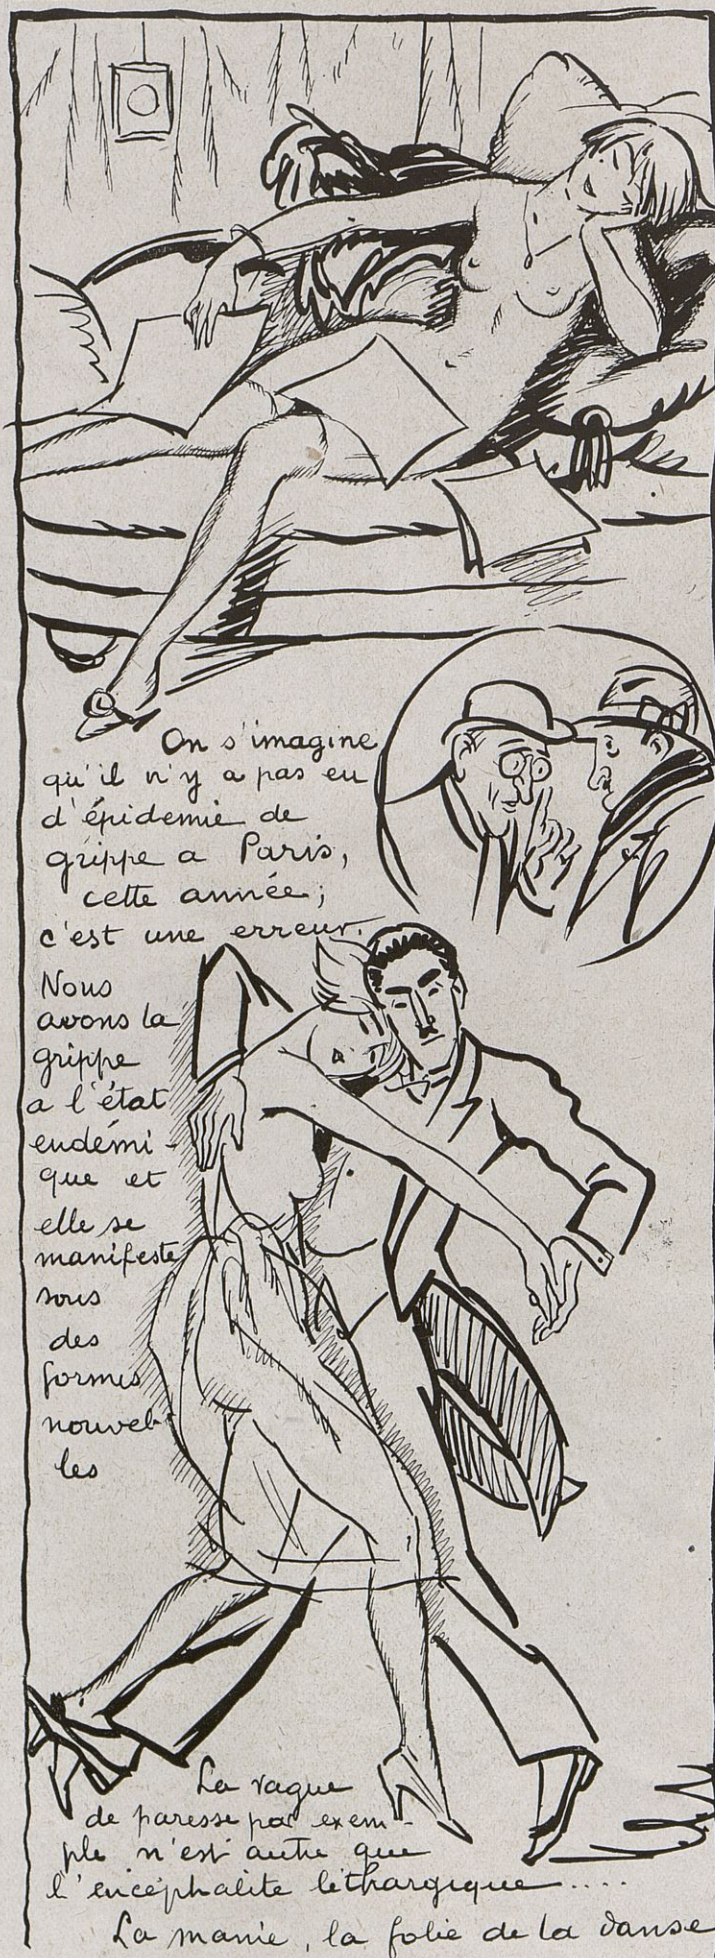 On s'imagine
qu'il n'y a pas eu
d'épidemie de
grippe a Paris,
cette année;
c'est une erreur.
Nous
avons la
grippe
a l'état
endémi-
que et
elle se
manifeste
sous
des
formes
nouvel-
les
La vague
de paresse par exem-
ple n'est autre que
l'encéphalite léthargique.....
La manie, la folie de la danse